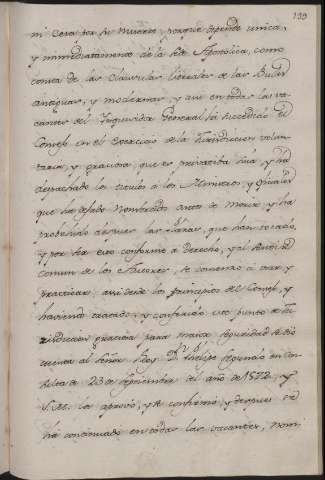 139
ni Cesa por su muerte, porque depende unica,
y immediatamente de la Sede Apostolica, como
consta de las Clausulas literales de las Bulas
antiguas, y modernas, y assi en todas las va-
cantes del Inquisidor General ha sucedido el
Consejo en el exercicio de la Jurisdicion volun-
taria, y graciosa, que es privatiba suia, y ha
despachado los titulos a los Ministros, y oficiales
que ha dejado nombrados antes de morir y ha
probehido despues las Plazas, que han vacado,
y por ser esto conforme a derecho, y al sentir
comun de los Autores, se comenzo a usar, y
practicar, assi desde los principios del Consejo, y
haviendo tratado, y conferido este punto de Ju-
risdicion graciosa para maior seguridad se dio
cuenta al Señor Rey Dn. Phelipe segundo en Con-
sulta a 23 de septiembre del año de 1572, y
S. M. lo aprovó, y se conformó, y despues se
ha continuado en todas las vacantes, nom-